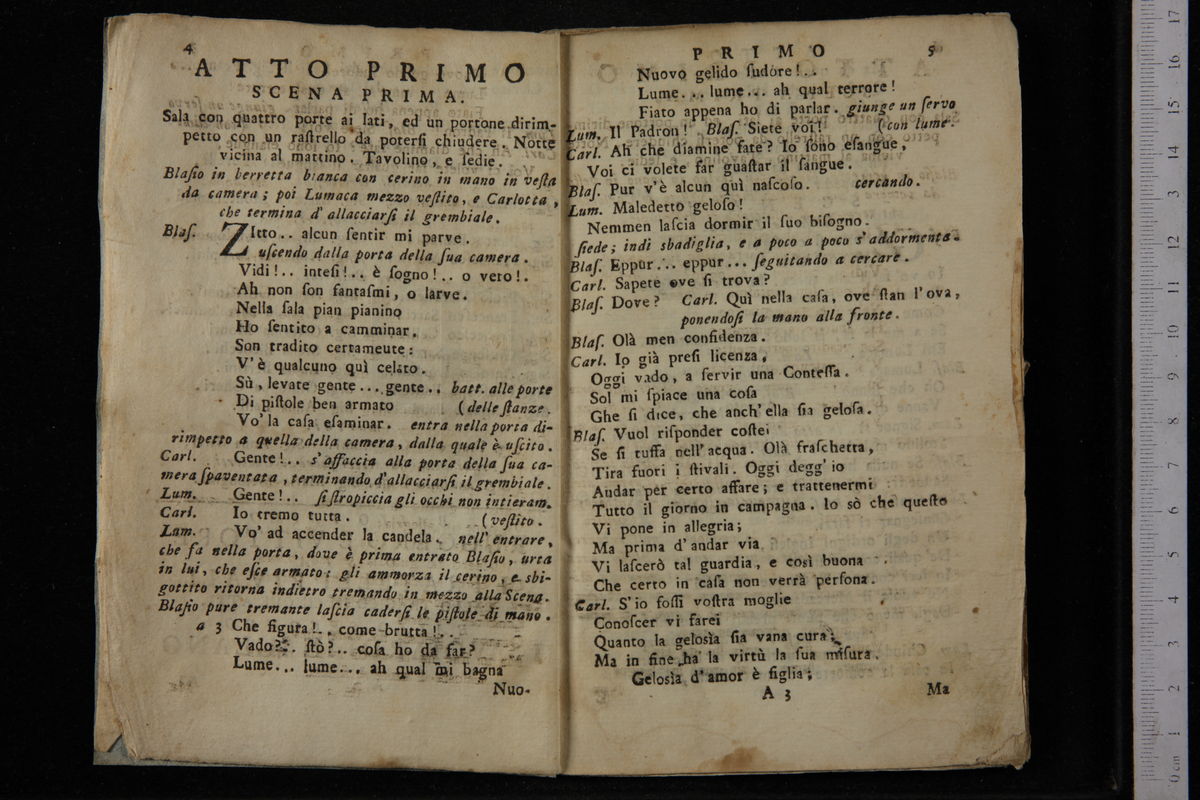 4
ATTO PRIMO
SCENA PRIMA.
Sala con quattro porte ai lati, ed un portone dirim-
petto con un raſtrello da poterſi chiudere. Notte
vicina al mattino. Tavolino, e ſedie.
Blaſio in berretta bianca con cerino in mano in veſta
da camera; poi Lumaca mezzo veſtito, e Carlotta,
che termina d' allacciarſi il grembiale.
Blaſ. ZItto.. alcun ſentir mi parve.
uſcendo dalla porta della ſua camera.
Vidi!.. inteſi!.. è ſogno!.. o vero!.
Ah non ſon fantaſmi, o larve.
Nella ſala pian pianino
Ho ſentito a camminar.
Son tradito certameute:
V'è qualcuno quì celato.
Sù, levate gente... gente.. batt. alle porte
Di piſtole ben armato (delle ſtanze.
Vo' la caſa eſaminar. entra nella porta di-
rimpetto a quella della camera, dalla quale è uſcito.
Carl. Gente!.. s'affaccia alla porta della ſua ca-
mera ſpaventata, terminando d'allacciarſi il grembiale.
Lum. Gente!.. ſi ſtropiccia gli occhi non intieram.
Carl. Io tremo tutta. (veſtito.
Lum. Vo' ad accender la candela. nell' entrare,
che fa nella porta, dove è prima entrato Blaſio, urta
in lui, che eſce armato: gli ammorza il cerino, e sbi-
gottito ritorna indietro tremando in mezzo alla Scena.
Blaſio pure tremante laſcia caderſi le piſtole di mano.
a 3 Che figura!.. come brutta!..
Vado?.. ſtò?.. coſa ho da far?
Lume... lume... ah qual mi bagna
Nuo-
PRIMO 5
Nuovo gelido ſudore!..
Lume... lume... ah qual terrore!
Fiato appena ho di parlar. giunge un ſervo
Lum. Il Padron! Blaſ. Siete voi! (con lume.
Carl. Ah che diamine fate? Io ſono eſangue,
Voi ci volete far guaſtar il ſangue.
Blaſ. Pur v'è alcun quì naſcoſo. cercando.
Lum. Maledetto geloſo!
Nemmen laſcia dormir il ſuo biſogno.
ſiede; indi sbadiglia, e a poco a poco s'addormenta.
Blaſ. Eppur... eppur... ſeguitando a cercare.
Carl. Sapete ove ſi trova?
Blaſ. Dove? Carl. Quì nella caſa, ove ſtan l'ova,
ponendoſi la mano alla fronte.
Blaſ. Olà men confidenza.
Carl. Io già preſi licenza,
Oggi vado, a ſervir una Conteſſa.
Sol mi ſpiace una coſa
Ghe ſi dice, che anch'ella ſia geloſa.
Blaſ. Vuol riſponder coſtei
Se ſi tuffa nell'acqua. Olà fraſchetta,
Tira fuori i ſtivali. Oggi degg' io
Andar per certo affare; e trattenermi
Tutto il giorno in campagna. Io sò che queſto
Vi pone in allegria;
Ma prima d'andar via
Vi laſcerò tal guardia, e così buona
Che certo in caſa non verrà perſona.
Carl. S'io foſſi voſtra moglie
Conoſcer vi farei
Quanto la geloſìa ſia vana cura;
Ma in fine ha la virtù la ſua miſura.
Geloſìa d'amor è figlia;
A 3 Ma